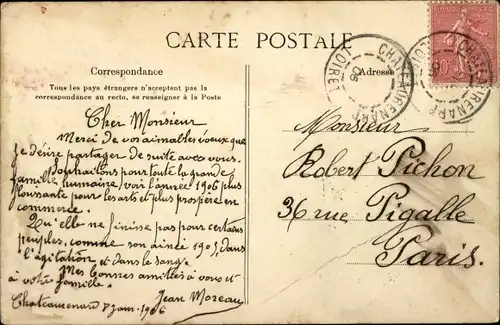 CARTE POSTALE
Correspondance
Tous les pays étrangers n'acceptent pas la
correspondance au recto, se renseigner à la Poste
Cher Monsieur
Merci de vos aimables vœux que
je désire partager de suite avec vous.
Souhaitons pour toute la grande
famille humaine, voir l'année 1906 plus
florissante pour les arts et plus prospère en
commerce.
Qu'elle ne finisse pas pour certains
peuples, comme son aînée 1905, dans
l'agitation et dans le sang.
Mes bonnes amitiés à vous et
à votre famille.
Chateaurenard 7 Janv. 1906 Jean Moreau
Adresse
Monsieur
Robert Pichon
36 rue Pigalle
Paris.
LOIRET